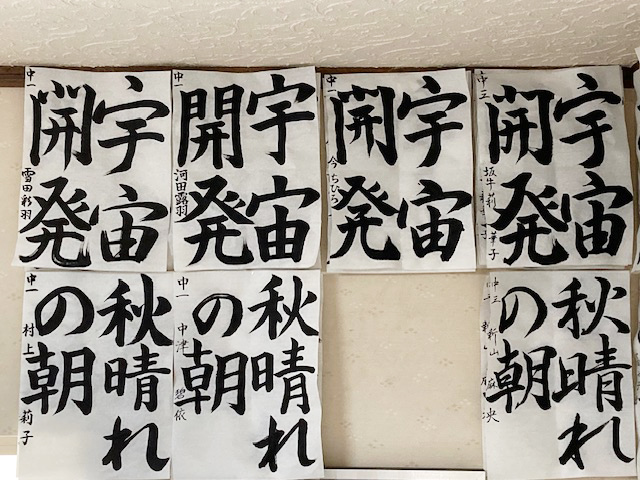 宇宙
開発
中一 雪田彩羽
宇宙
開発
中一 河田露羽
宇宙
開発
中一 今ちひろ
宇宙
開発
中三 坂牛
秋晴れ
の朝
中一 村上莉子
秋晴れ
の朝
中一 中津碧依
秋晴れ
の朝
中三 新山